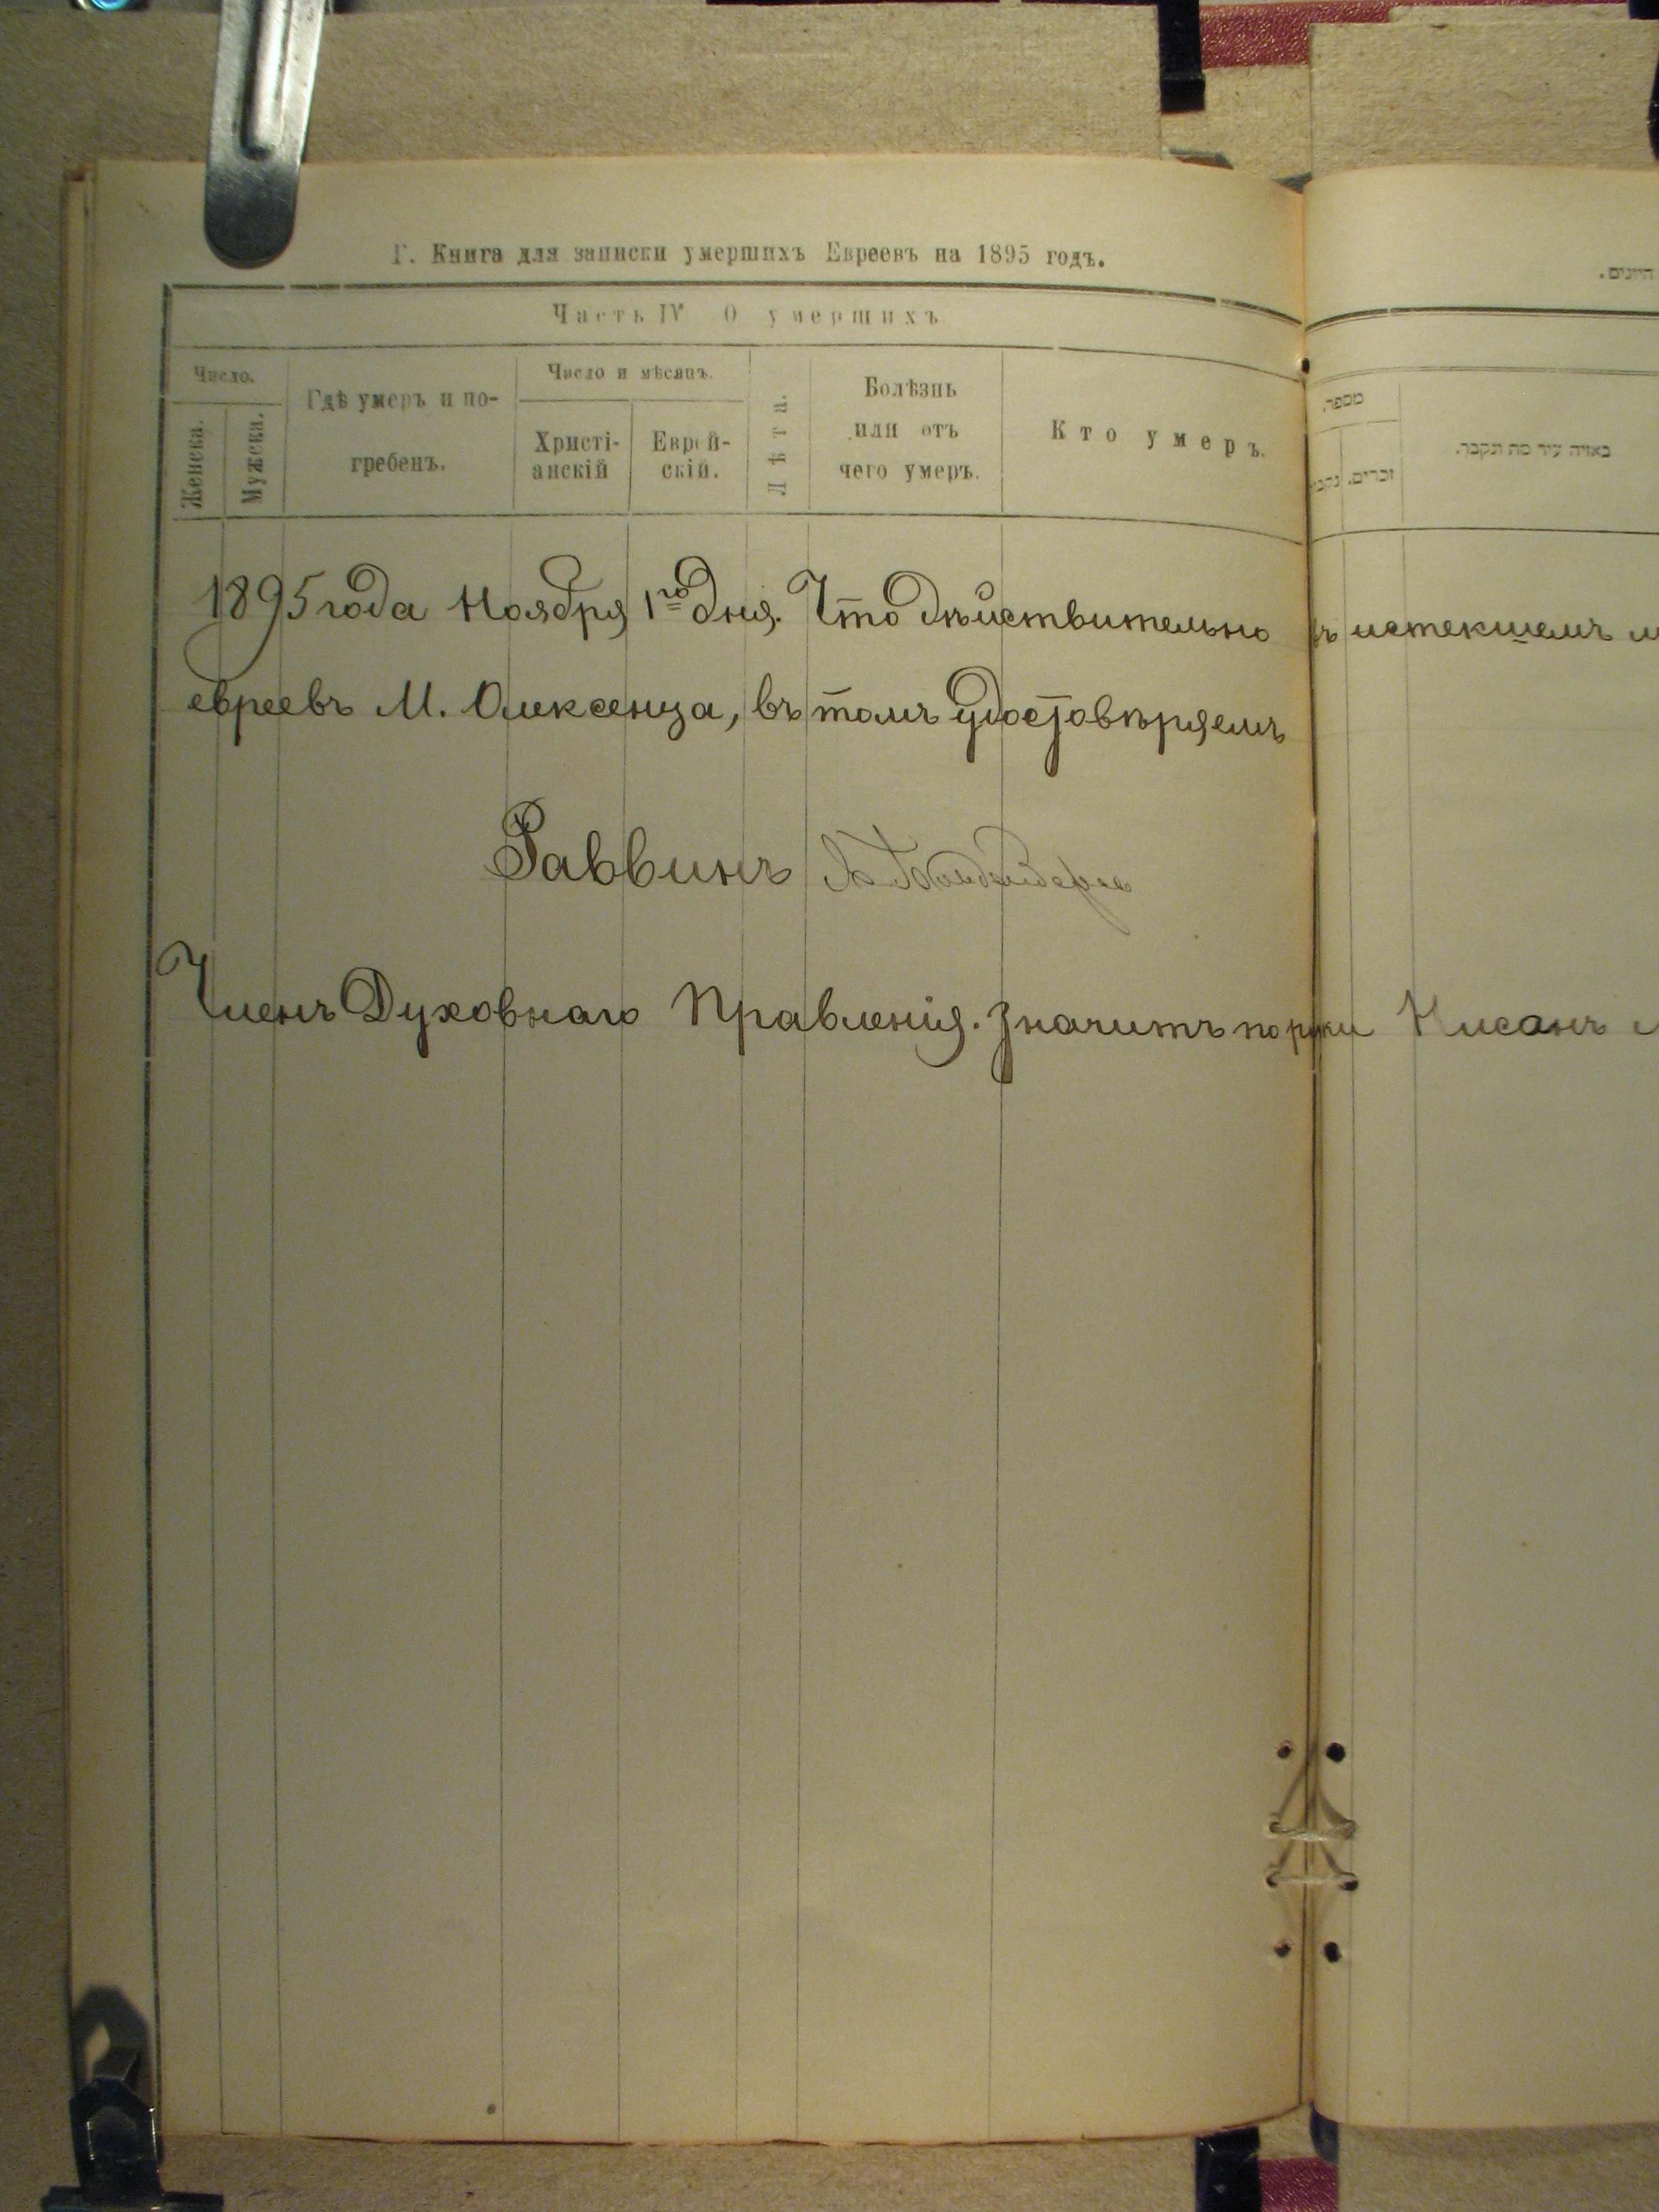 Г. Книга для записки умершихъ Евреевъ на 1895 годъ.
Часть IV О умершихъ
Число.
Женска.
Мужеска.
Гдѣ умеръ и по-
гребенъ.
Число и мѣсяцъ.
Христі-
анскій
Еврей-
скій.
Лѣта.
Болѣзнь
или отъ
чего умеръ.
Кто умеръ.
מספר.
זכרים.
באיזה עיר מת ונקבר.
1895 года Ноября 1го дня. Что дѣйствительно въ истекшемъ
евреевъ М. Олексенца, въ томъ удостовѣряемъ
Раввинъ
Членъ Духовнаго Правленія. Значитъ по руки Нисанъ